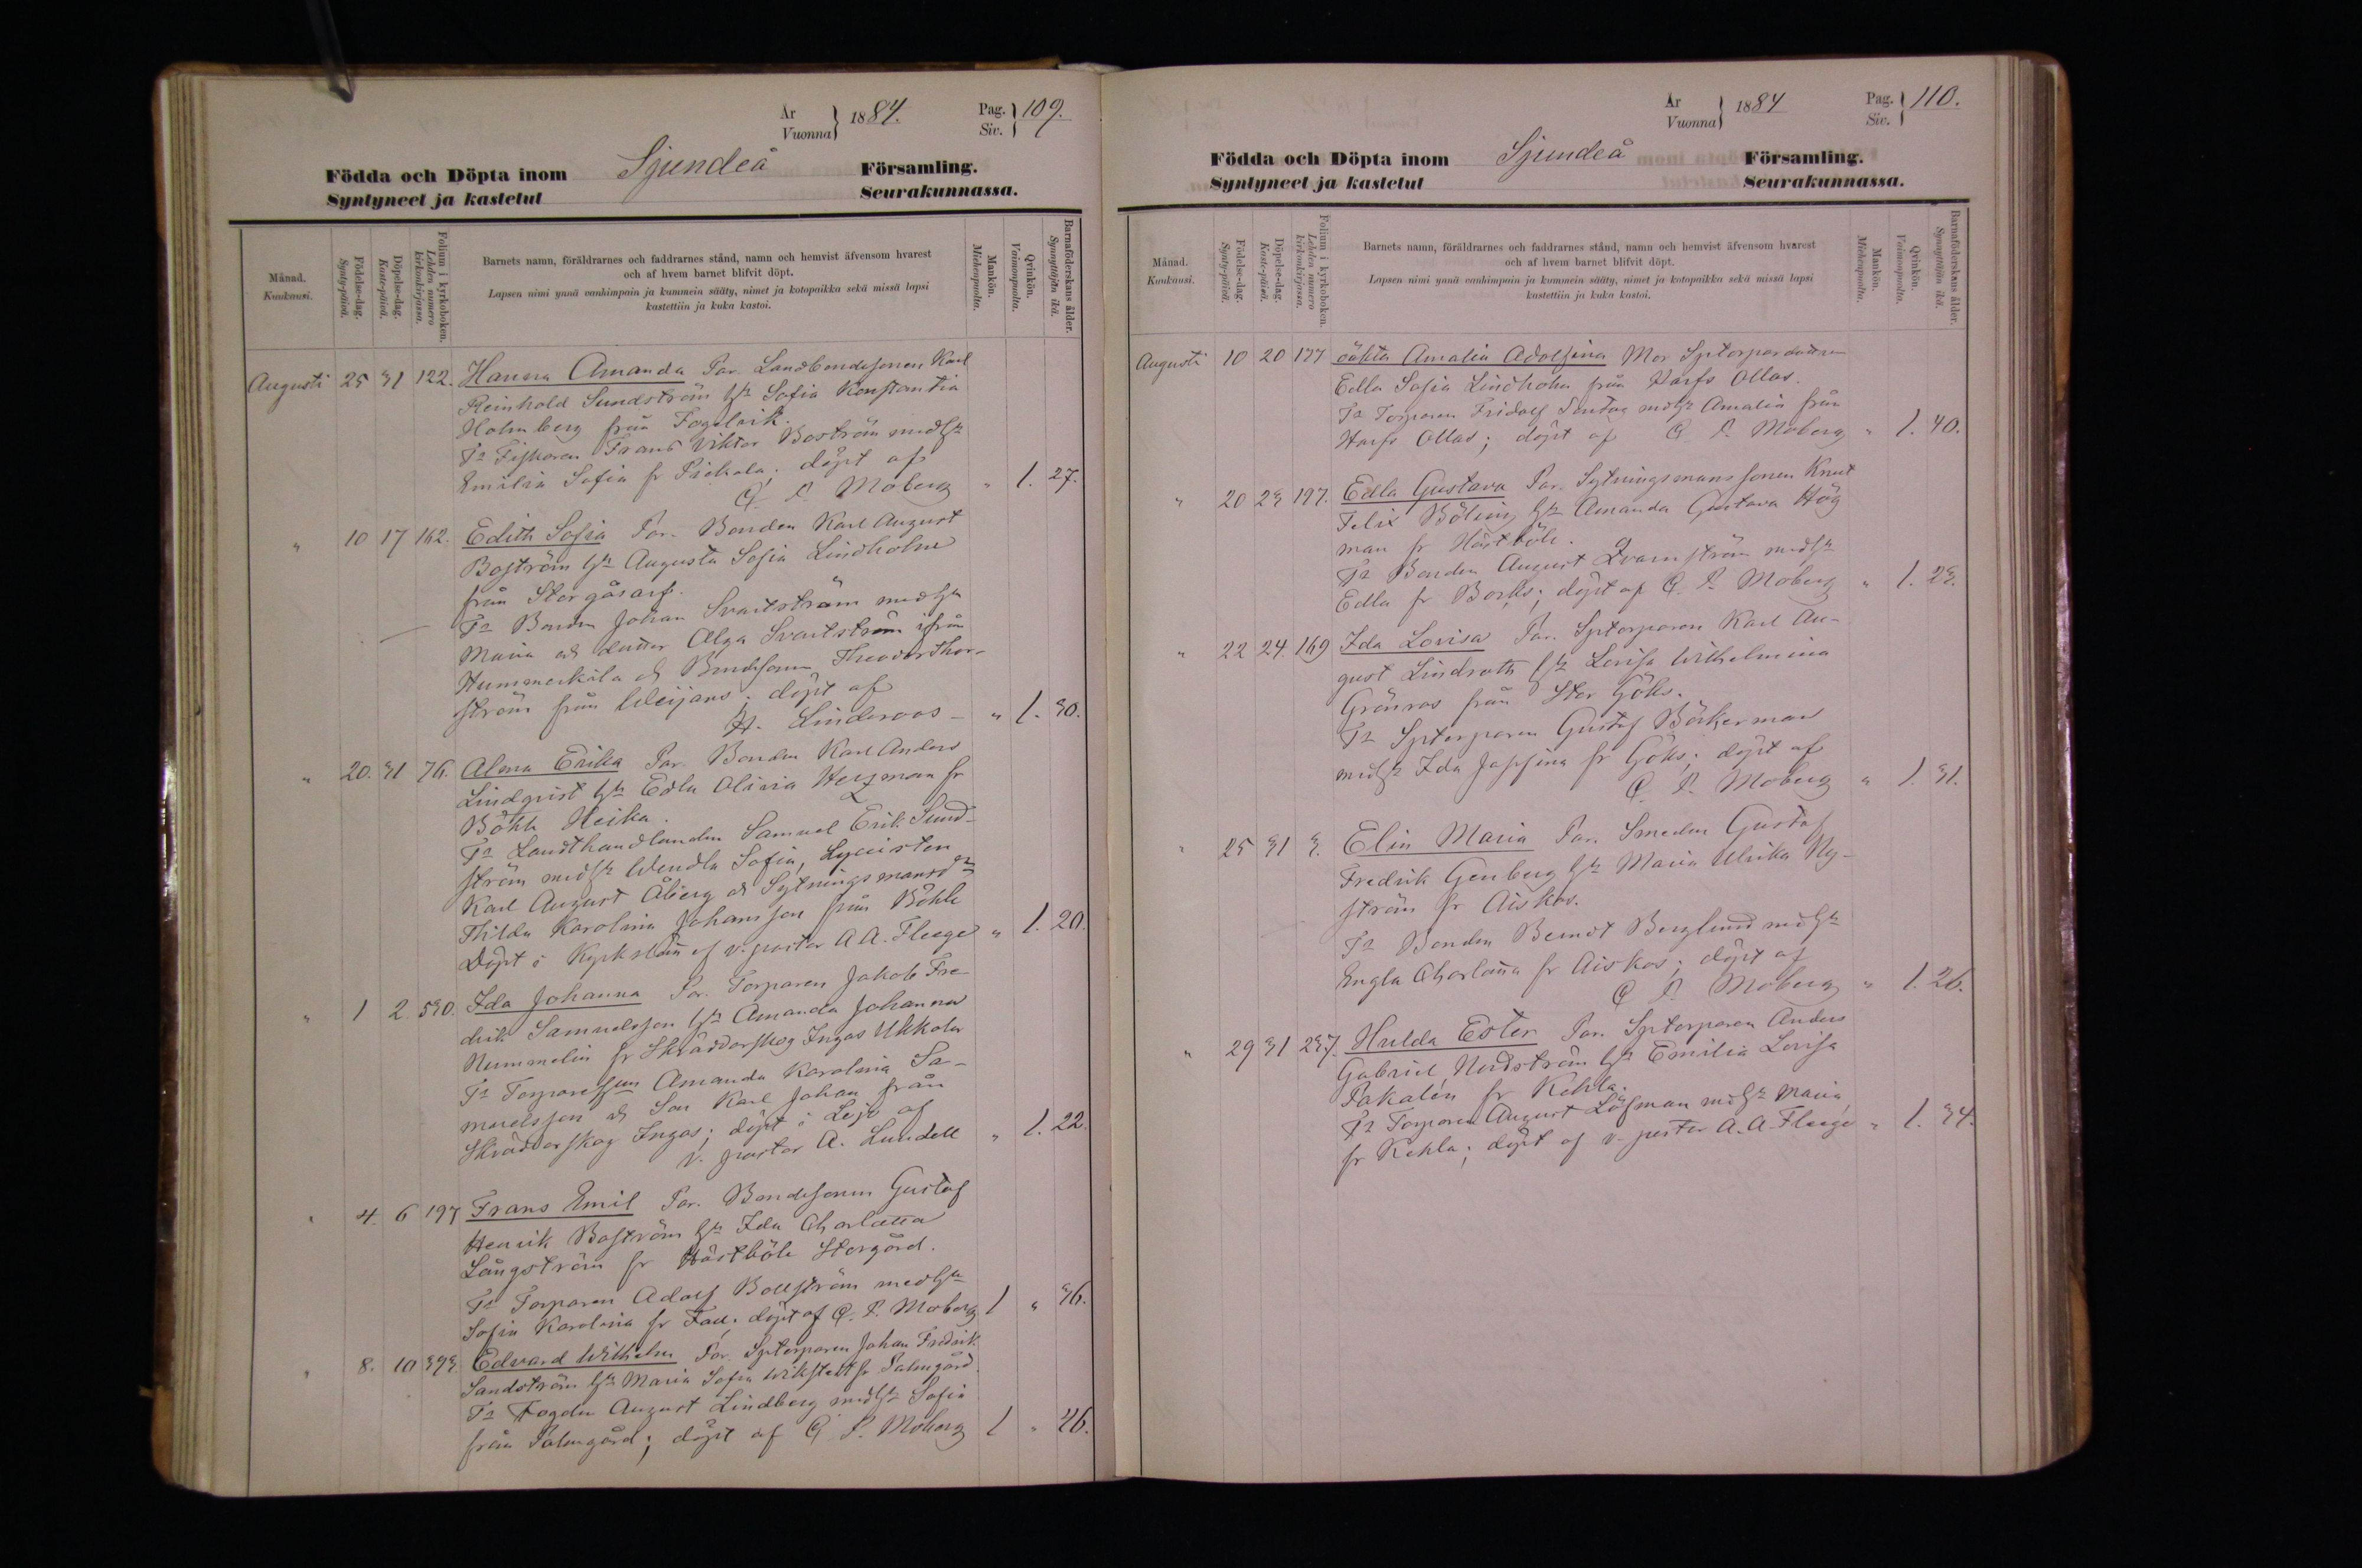 År
Vuonna } 1884. Pag.
Siv. } 109.
Födda och Döpta inom Sjundeå Församling.
Syntyneet ja kastetut Seurakunnassa.
Månad.
Kuukausi.
Födelse-dag.
Synty-päivä.
Döpelse-dag.
Kaste-päivä.
Folium i kyrkoboken.
Lehden numero kirkonkirjassa.
Barnets namn, föräldrarnes och faddrarnes stånd, namn och hemvist äfvensom hvarest
och af hvem barnet blifvit döpt.
Lapsen nimi ynnä vanhimpain ja kummein sääty, nimet ja kotopaikka sekä missä lapsi
kastettiin ja kuka kastoi.
Mankön.
Miehenpuolta.
Qvinkön.
Vaimonpuolta.
Barnaföderskans ålder.
Synnyttäjän ikä.
Augusti 25 31 122. Hanna Amanda Par. Landbondesonen Karl
Reinhold Sundström hu Sofia Konstantia
Holmberg från Fogelvik.
Fr Fiskaren Frans Viktor Boström med hu
Emilia Sofia fr Pickala; döpt af
G. P. Moberg " 1. 27.
" 10 17 162. Edith Sofia Par. Bonden Karl August
Boström hu Augusta Sofia Lindholm
från Storgårs
Fr Bonden Johan Svartström med hu
Maria och dotter Olga Svartström ifrån
Hummerkila och Bondesonen Theodor Thor-
ström från Weijans; döpt af
H. Linderoos - " 1. 30.
" 20. 31 76. Alma Erika Par. Bonden Karl Anders
Lindqvist hu Edla Olivia Hergman fr
Böhle Heika.
Fr Landthandlanden Samuel Erik Sund-
ström med hu Wendla Sofia, Lyceisten
Karl August Åberg och Sytningsmansd
Thilda Karolina Johansson från Böhle
Döpt i Kyrkslätt af v. pastor A A. Fleege " 1. 20.
" 1 2. 530. Ida Johanna Par. Torparen Jakob Fre-
drik Samuelsson hu Amanda Johanna
Nummelin fr Skräddarskog Ingas Ukkola
Fr Amanda Karolina Sa-
muelsson och Son Karl Johan från
Skräddarskog Ingas; döpt i Lojo af
v. pastor A. Lundell " 1. 22.
" 4. 6 197 Frans Emil Par. Bondesonen Gustaf
Henrik Boström hu Ida Charlotta
Långström fr Hästböle Storgård.
Fr Torparen Adolf Bollström med hu
Sofia Karolina fr Fall; döpt af G. P. Moberg 1 " 36.
" 8. 10 393. Edvard Wilhelm Par. Sptorparen Johan Fredrik
Sandström hu Maria Sofia Wikstedt fr Palmgård.
Fr Fogden August Lindberg med hu Sofia
från Palmgård; döpt af G. P. Moberg 1 " 26.
År
Vuonna } 1884 Pag.
Siv. } 110.
Födda och Döpta inom Sjundeå Församling.
Syntyneet ja kastetut Seurakunnassa.
Månad.
Kuukausi.
Födelse-dag.
Synty-päivä.
Döpelse-dag.
Kaste-päivä.
Folium i kyrkoboken.
Lehden numero kirkonkirjassa.
Barnets namn, föräldrarnes och faddrarnes stånd, namn och hemvist äfvensom hvarest
och af hvem barnet blifvit döpt.
Lapsen nimi ynnä vanhimpain ja kummein sääty, nimet ja kotopaikka sekä missä lapsi
kastettiin ja kuka kastoi.
Mankön.
Miehenpuolta.
Qvinkön.
Vaimonpuolta.
Barnaföderskans ålder.
Synnyttäjän ikä.
Augusti 10 20 177 oäkta Amalia Adolfina Mor Sptorpardottren
Edla Sofia Lindholm från Harfs Ollas.
Fr Torparen Fridolf med hu Amalia från
Harfs Ollas; döpt af G. P. Moberg " 1. 40.
" 20 23 197. Edla Gustava Par. Sytningsmanssonen Knut
Felix Böling hu Amanda Gustava Hög
man fr Hästböle.
Fr Bonden August Qvarnström med hu
Edla fr Borks; döpt af G. P. Moberg " 1. 23.
" 22 24. 169 Ida Lovisa Par. Sptorparen Karl Au-
gust Lindroth hu Lovisa Wilhelmina
Grönros från Stor Göks.
Fr Sptorparen Gustaf Böckerman
med hu Ida Josefina fr Göks; döpt af
G. P. Moberg " 1. 31.
" 25 31 3. Elin Maria Par. Smeden Gustaf
Fredrik Genberg hu Maria Ulrika Ny-
ström fr Aiskos.
Fr Bonden Berndt Berglund med hu
Engla Charlotta fr Aiskos; döpt af
G P. Moberg " 1. 26.
" 29 31 237. Hulda Ester Par. Sptorparen Anders
Gabriel Nordström hu Emilia Lovisa
Pakalén fr Kehla.
Fr Torparen August Löfman med hu Maria
fr Kehla; döpt af v. pastor A. A. Fleege " 1. 34.